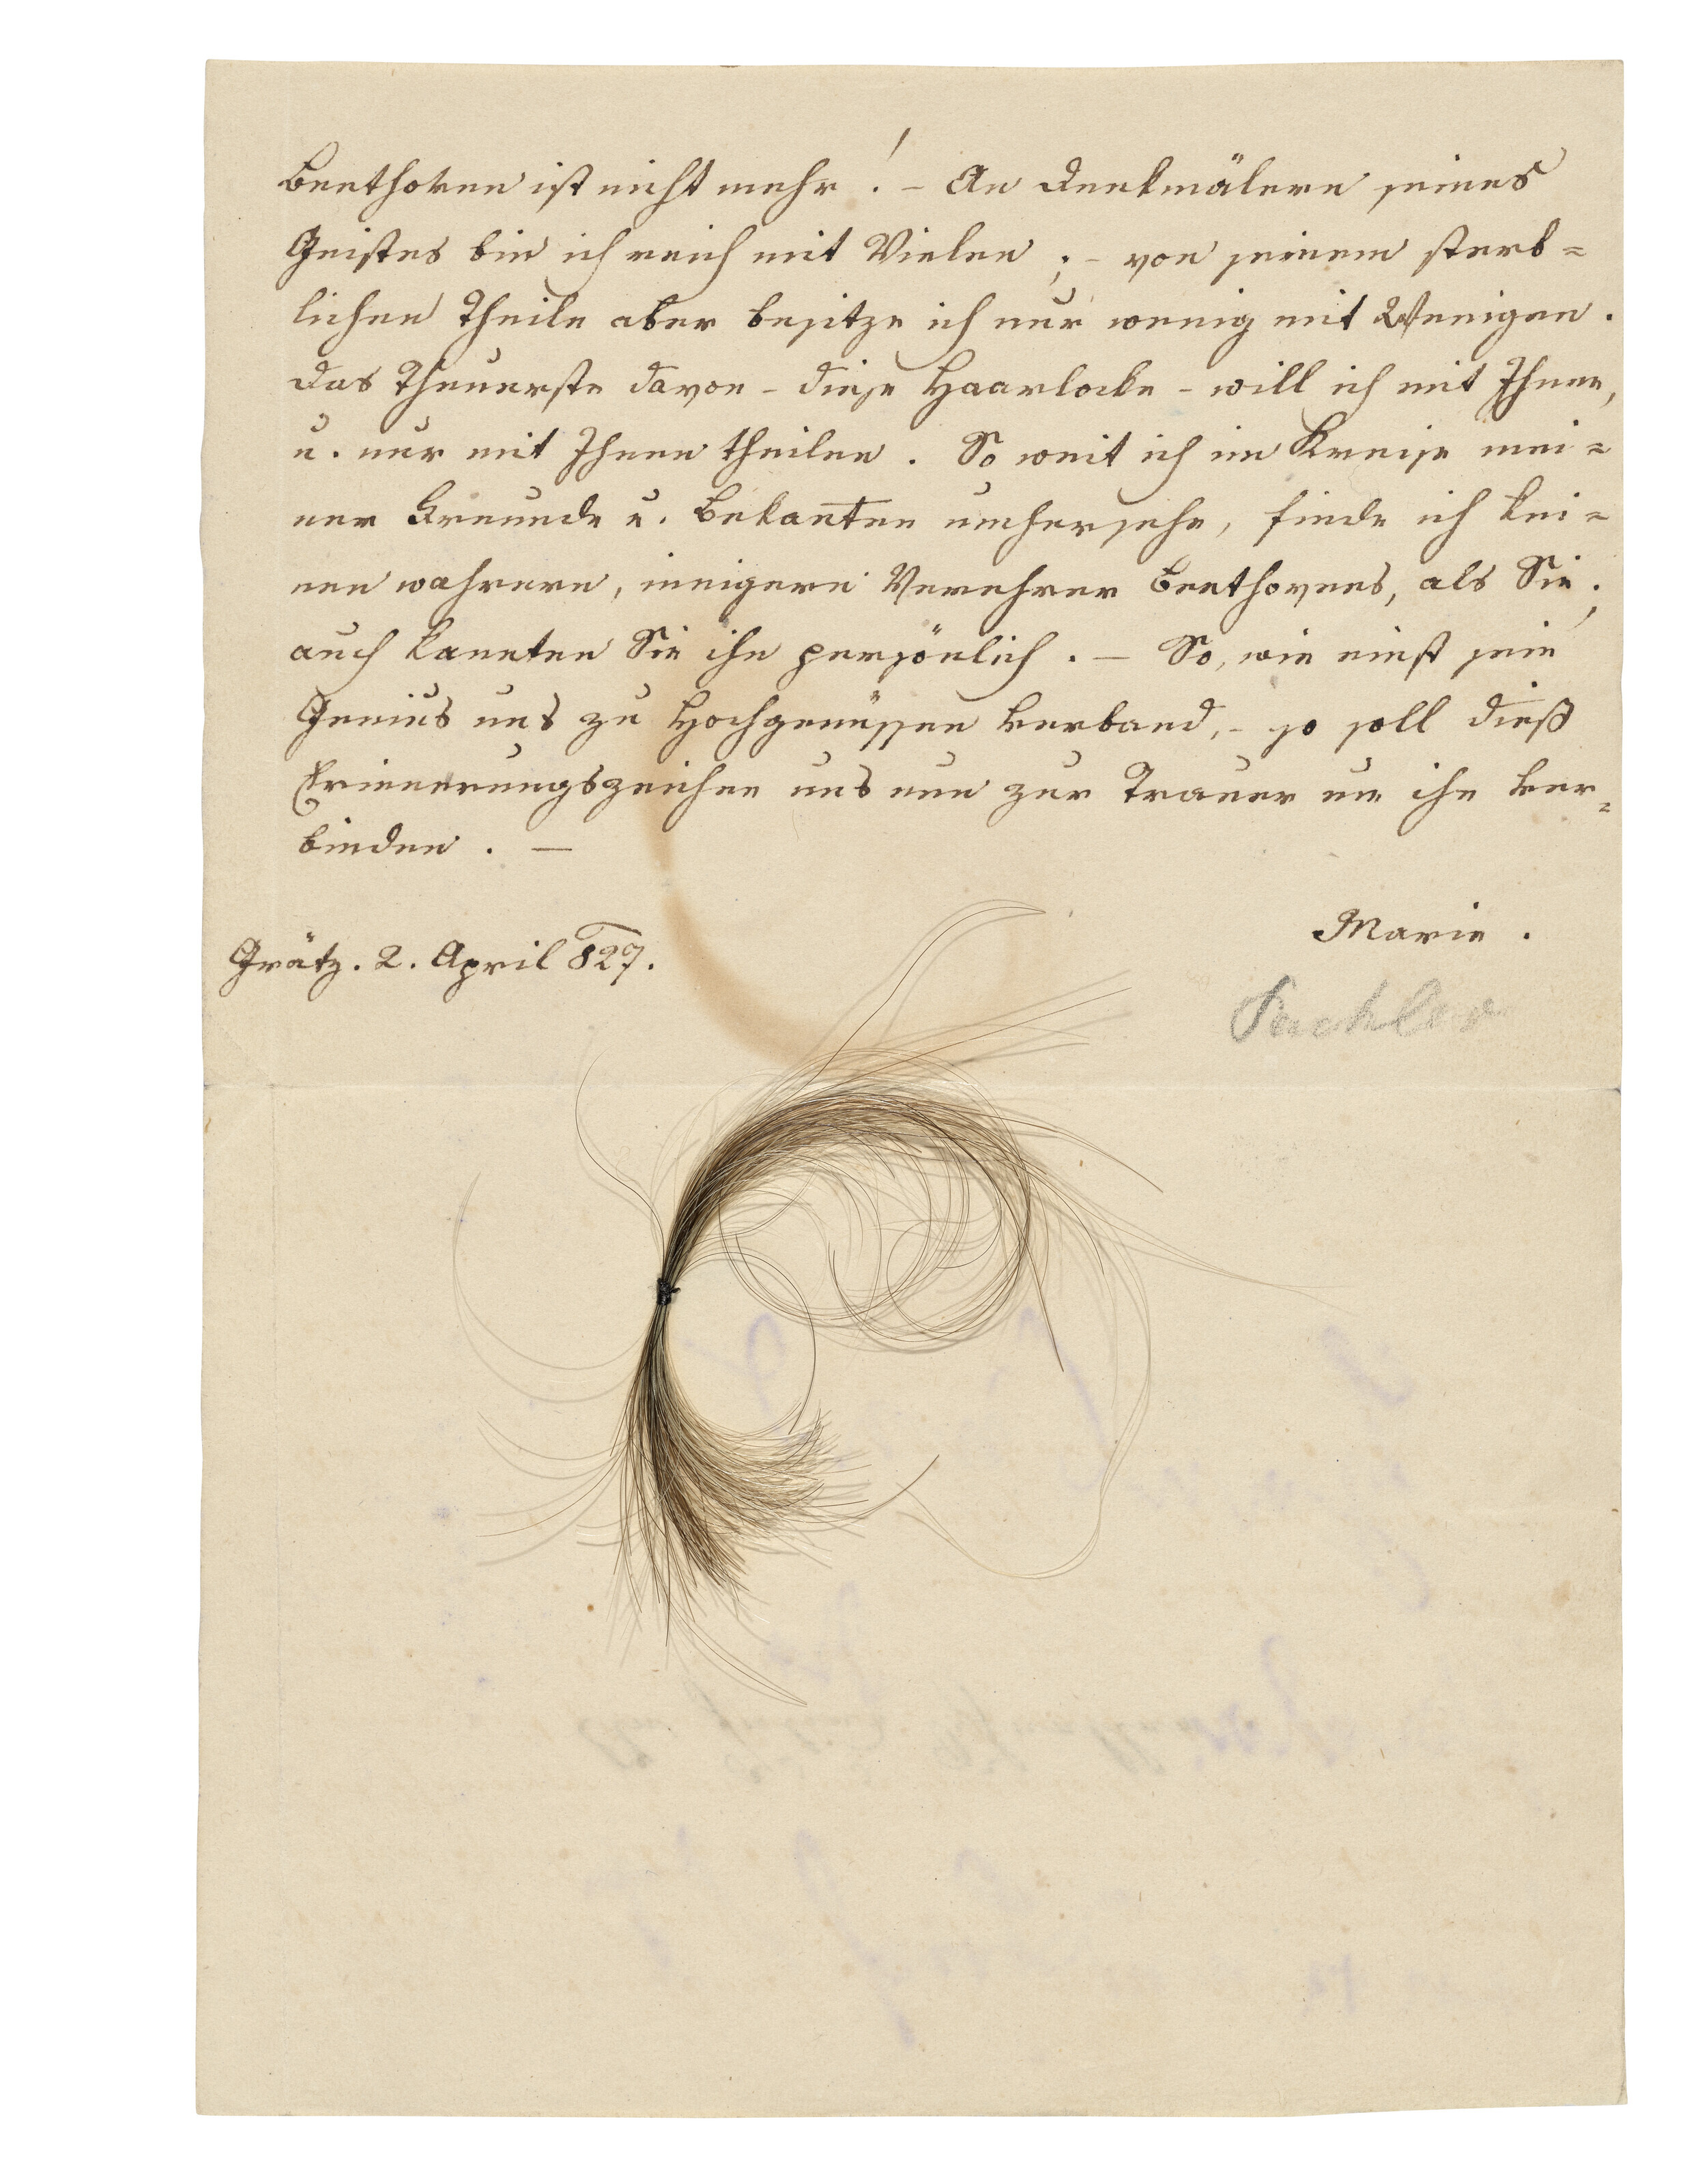 Beethoven ist nicht mehr! – An Denkmälern seines
Geistes bin ich reich mit Vielen; – von seinem sterb=
lichen Theile aber besitze ich nur wenig mit Wenigen.
Das Theuerste davon – diese Haarlocke – will ich mit Ihnen,
u. nur mit Ihnen theilen. So weit ich im Kreise mei=
ner Freunde u. Bekan̄ten umhersehe, finde ich kei=
nen wahrern, innigern Verehrer Beethovens, als Sie;
auch kannten Sie ihn persönlich. – So, wie einst sein
Genius uns zu Hochgenüssen verband, – so soll dieß
Erinnerungszeichen uns nun zur Trauer um ihn ver=
binden. –
Marie.
Grätz. 2. April 827.
Pachler